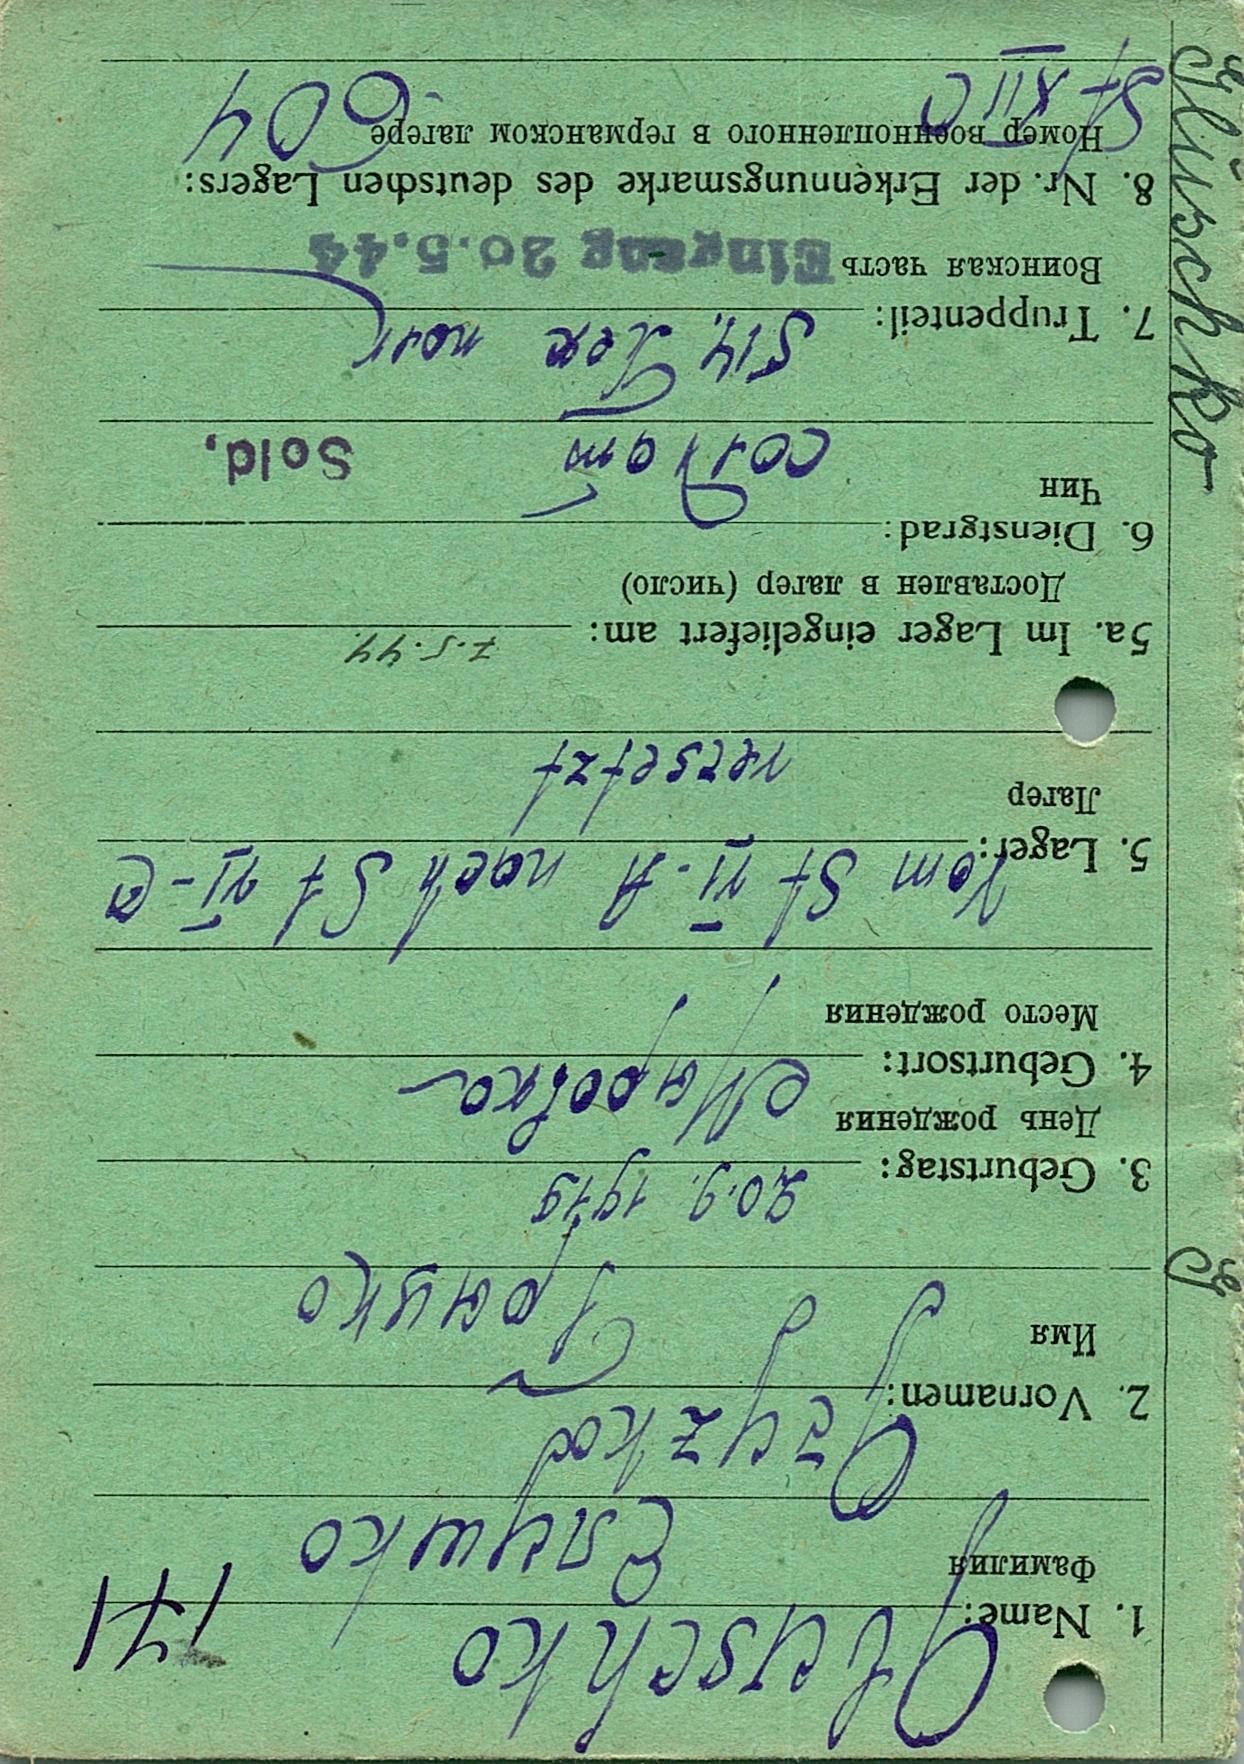 171
1. Name: Gluschko
Фамилия Глушко
2. Vornamen:
Имя
3. Geburtstag: 20.9.1919
День рождения
4. Geburtsort:
Место рождения
Vom St VI-A nach St VI-C
5. Lager:
Лагер
versetzt
5a. Im Lager eingeliefert am: 7.5.44.
Доставлен в лагер (число)
6. Dienstgrad:
Чин солдат Sold.
7. Truppenteil: 514. полк
Воинская часть Eingang 20.5.44
8. Nr. der Erkennungsmarke des deutschen Lagers:
Номер военнопленного в германском лагере 604
St XII C
G
Gluschko